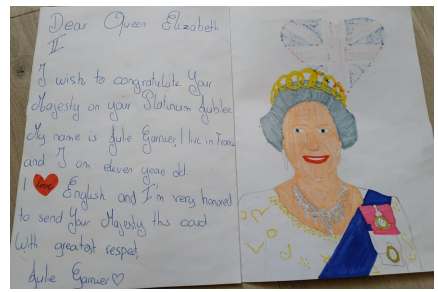 Dear Queen Elizabeth
II
I wish to congratulate Your
Majesty on your Platinum Jubilee
My name is Julie Garnier, I live in France
and I am eleven year old
I love English and I'm very honored
to send Your Majesty this card
With greatest respect,
Julie Garnier